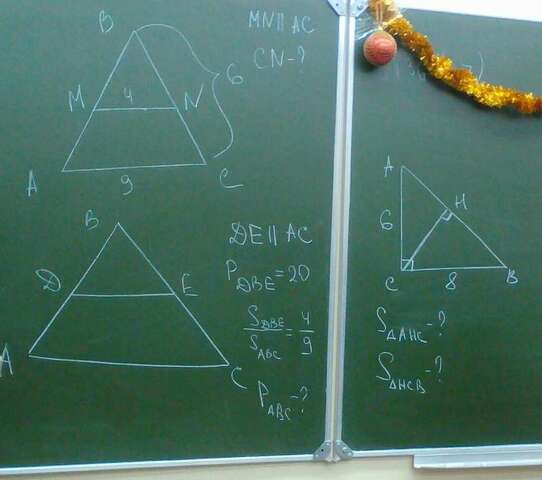 B
MN || AC
CN-?
6
M 4 N
A 9 C
B
DE || AC
D E
P DBE = 20
S DBE / S ABC = 4 / 9
A C
P ABC -?
A
H
6
C 8 B
S△AHC -?
S△HCB -?